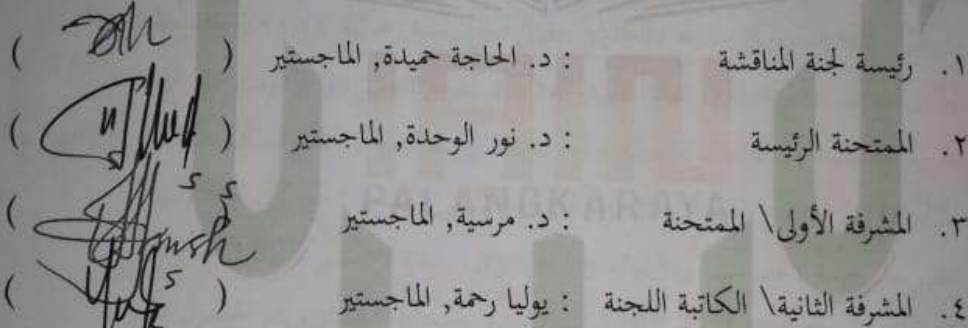 ١. رئيسة لجنة المناقشة : د. الحاجة حميدة, الماجستير ( )
٢. الممتحنة الرئيسة : د. نور الوحدة, الماجستير ( )
٣. المشرفة الأولى\ الممتحنة : د. مرسية, الماجستير ( )
٤. المشرفة الثانية\ الكاتبة اللجنة : يوليا رحمة, الماجستير ( )
PALANGKARAYA